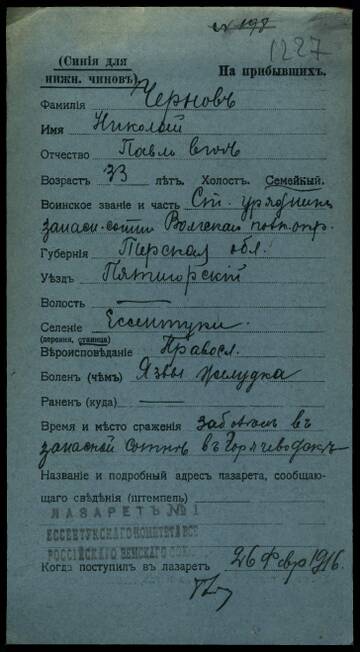 № 198
1227
(Синія для
нижн. чиновъ)
На прибывшихъ.
Фамилія Черновъ
Имя Николай
Отчество Павловъ
Возрастъ 33 лѣтъ. Холост. Семейный.
Воинское званіе и часть Ст. урядникъ
запасн. сотни Волгскаго полк.
Губернія Терская обл.
Уѣздъ Пятигорскій
Волость
Селеніе Ессентуки.
(деревня, станица)
Вѣроисповѣданіе Правосл.
Боленъ (чѣмъ) Язвы желудка
Раненъ (куда)
Время и мѣсто сраженія заболѣлъ въ
запасной сотнѣ въ
Названіе и подробный адресъ лазарета, сообщаю-
щаго свѣдѣнія (штемпель)
ЛАЗАРЕТЪ №1
ЕССЕНТУКСКАГО КОМИТЕТА ВСЕ
РОССІЙСКАГО ЗЕМСКАГО СОЮ
Когда поступилъ въ лазаретъ 26 Февр 1916.